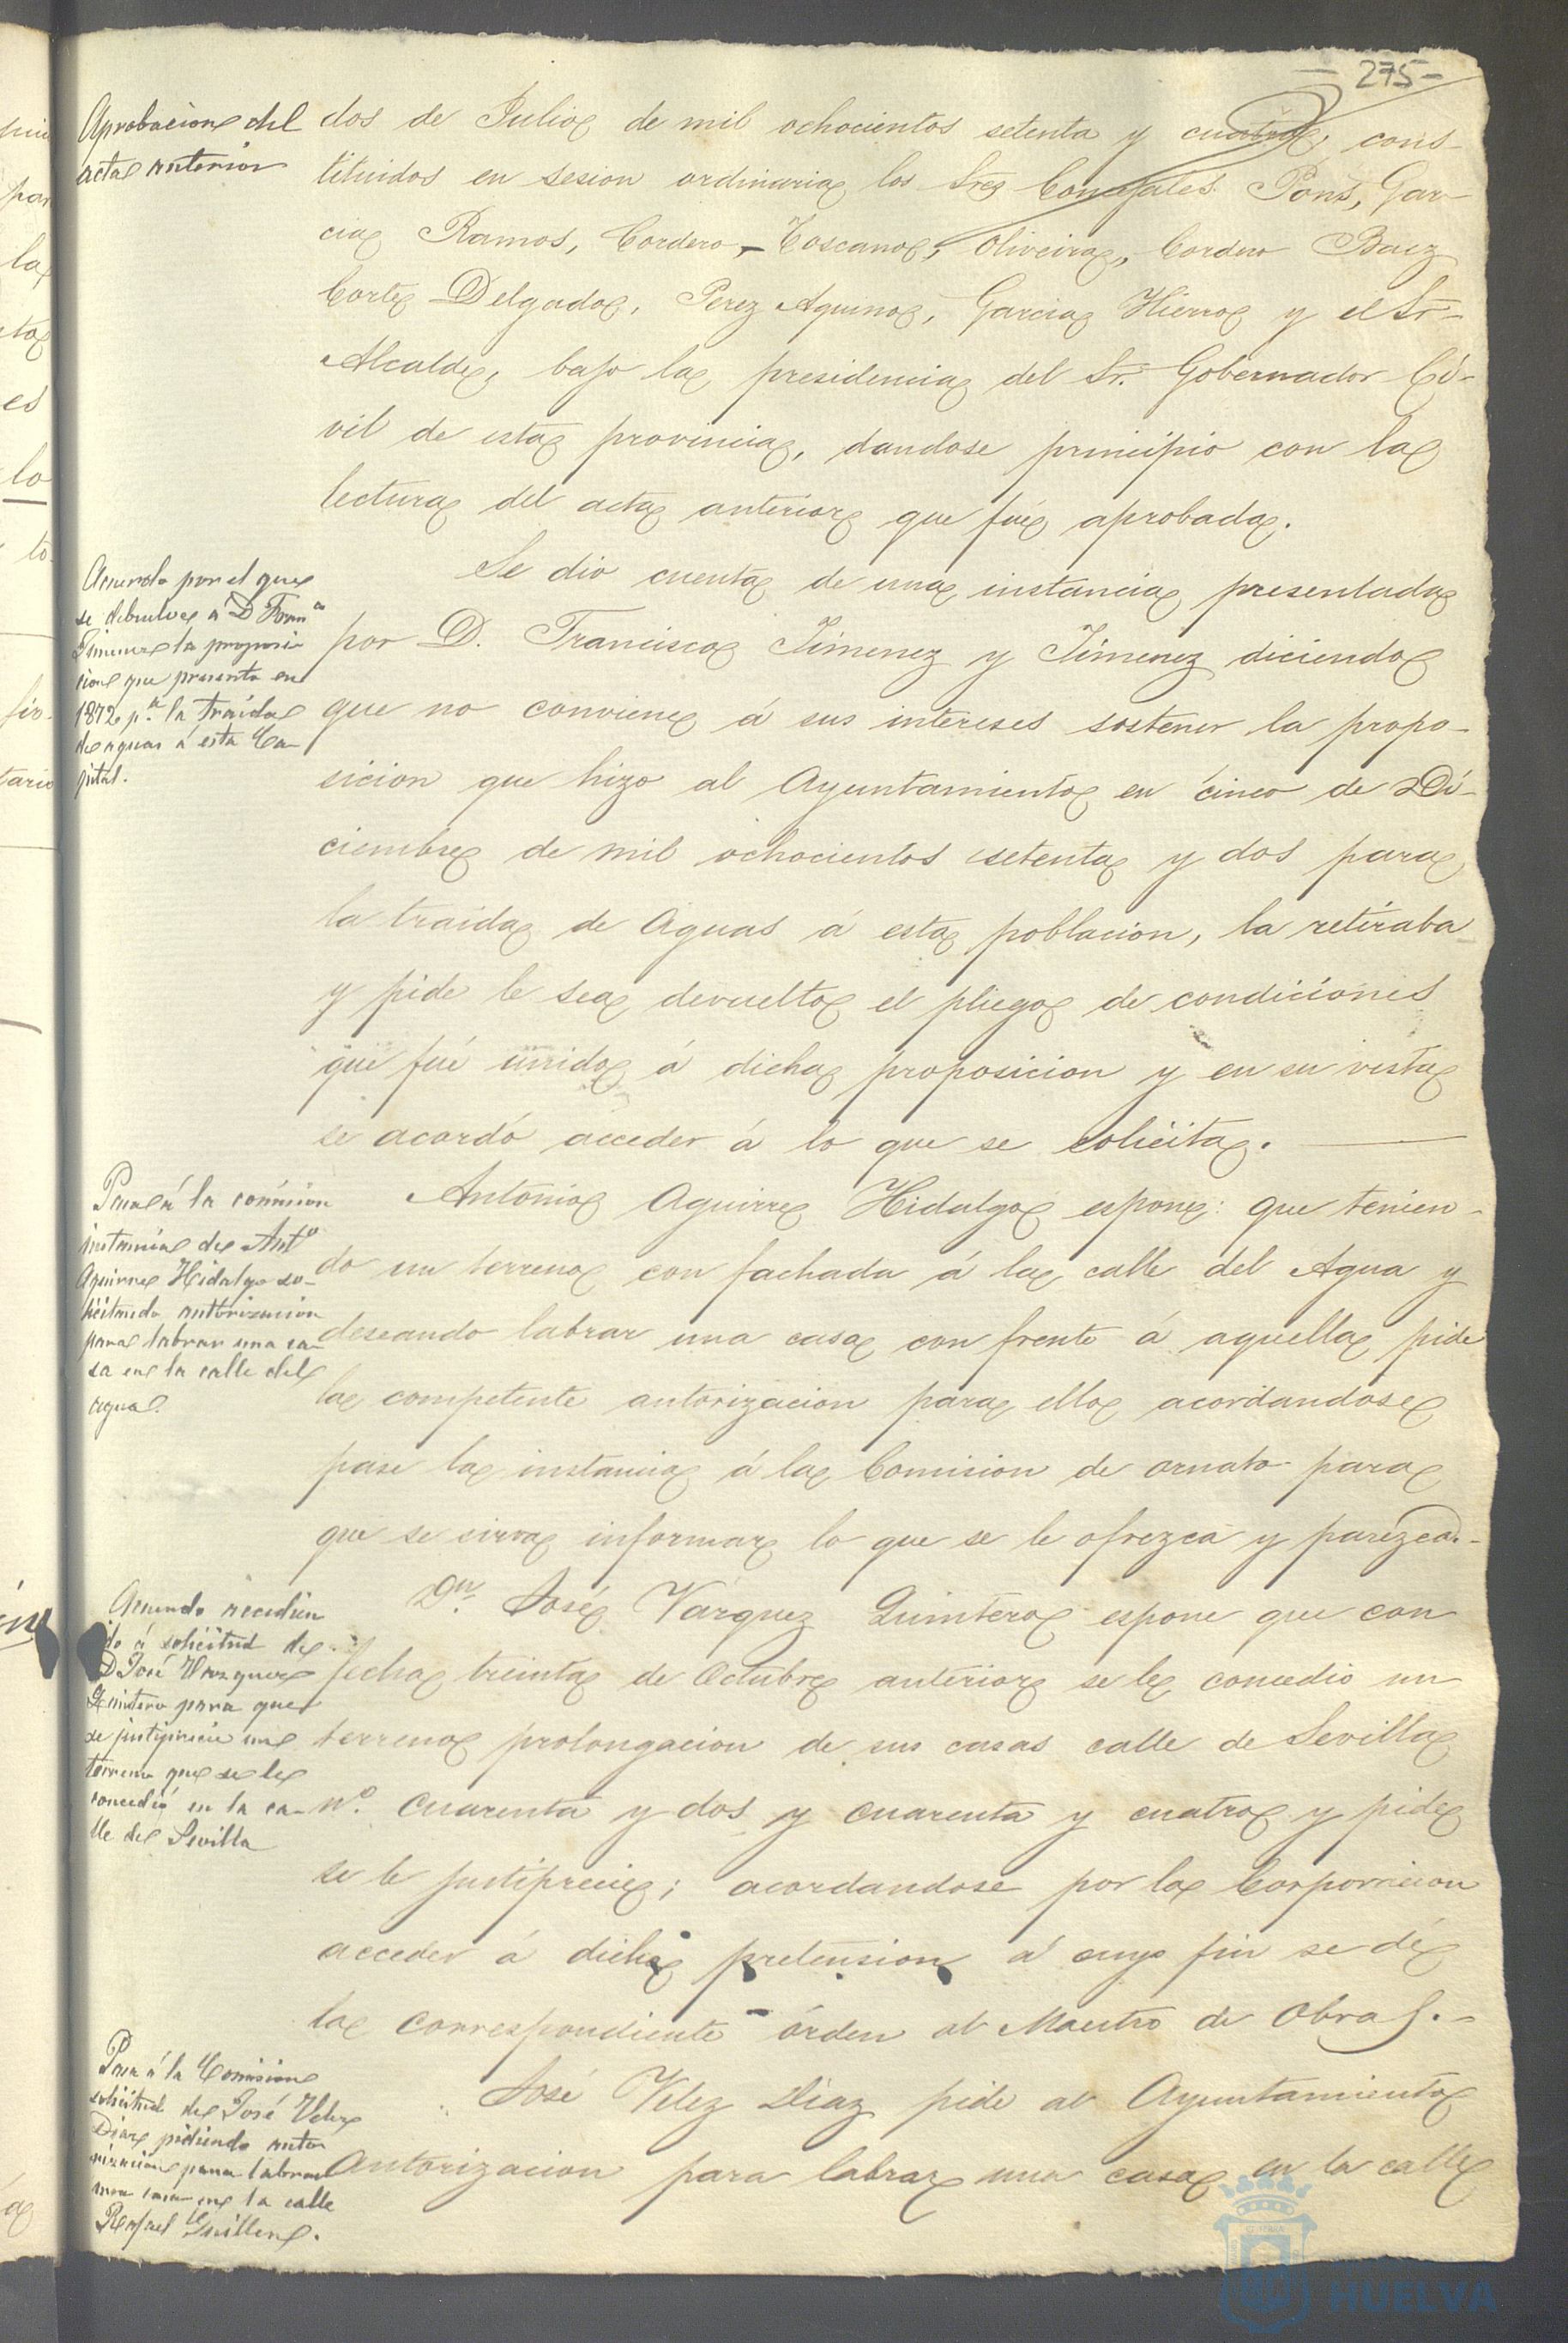 - 275 -
Aprobacion del
acta anterior
dos de Julio de mil ochocientos setenta y cuatro, cons-
tituidos en sesion ordinaria los Sres Concejales Pons, Gar-
cia Ramos, Cordero, Toscano, Oliveira, Cordero Baez
Corte Delgado, Perez Aquino, Garcia Hierro y el Sr.
Alcalde, bajo la presidencia del Sr. Gobernador Ci-
vil de esta provincia, dandose principio con la
lectura del acta anterior que fué aprobada.
Acuerdo por el que
se debuelve á D Franco
Jimenez la proposi-
cion que presento en
1872 pa. la traida
de aguas á esta Ca-
pital.
Se dio cuenta de una instancia presentada
por D. Francisco Jimenez y Jimenez diciendo
que no conviene á sus intereses sostener la propo-
sicion que hizo al Ayuntamiento en cinco de Di-
ciembre de mil ochocientos setenta y dos para
la traida de Aguas á esta poblacion, la retiraba
y pide le sea devuelto el pliego de condiciones
que fué unido á dicha proposicion y en su vista
se acordó acceder á lo que se solicita.
Pasa á la comision
instancia de Anto
Aguirre Hidalgo so-
licitando autorizacion
para labrar una ca-
sa en la calle del
agua.
Antonio Aguirre Hidalgo espone: que tenien-
do un terreno con fachada á la calle del Agua y
deseando labrar una casa con frente á aquella pide
la competente autorizacion para ello acordandose
pase la instancia á la Comision de ornato para
que se sirva informar lo que se le ofrezca y parezca.-
Acuerdo accedien
do á solicitud de
D José Vazquez
Quintero para que
se justiprecie un
terreno que se le
concedió en la ca-
lle de Sevilla
Dn. José Vazquez Quintero espone que con
fecha treinta de Octubre anterior se le concedio un
terreno prolongacion de sus casas calle de Sevilla
no. cuarenta y dos y cuarenta y cuatro y pide
se le justiprecie; acordandose por la Corporacion
acceder á dicha pretension á cuyo fin se dé
la correspondiente órden al Maestro de Obras.-
Pasa á la Comision
solicitud de José Velez
Diaz pidiendo auto
rizacion para labrar
una casa en la calle
Rafael Guillen.
José Velez Diaz pide al Ayuntamiento
autorizacion para labrar una casa en la calle
HUELVA